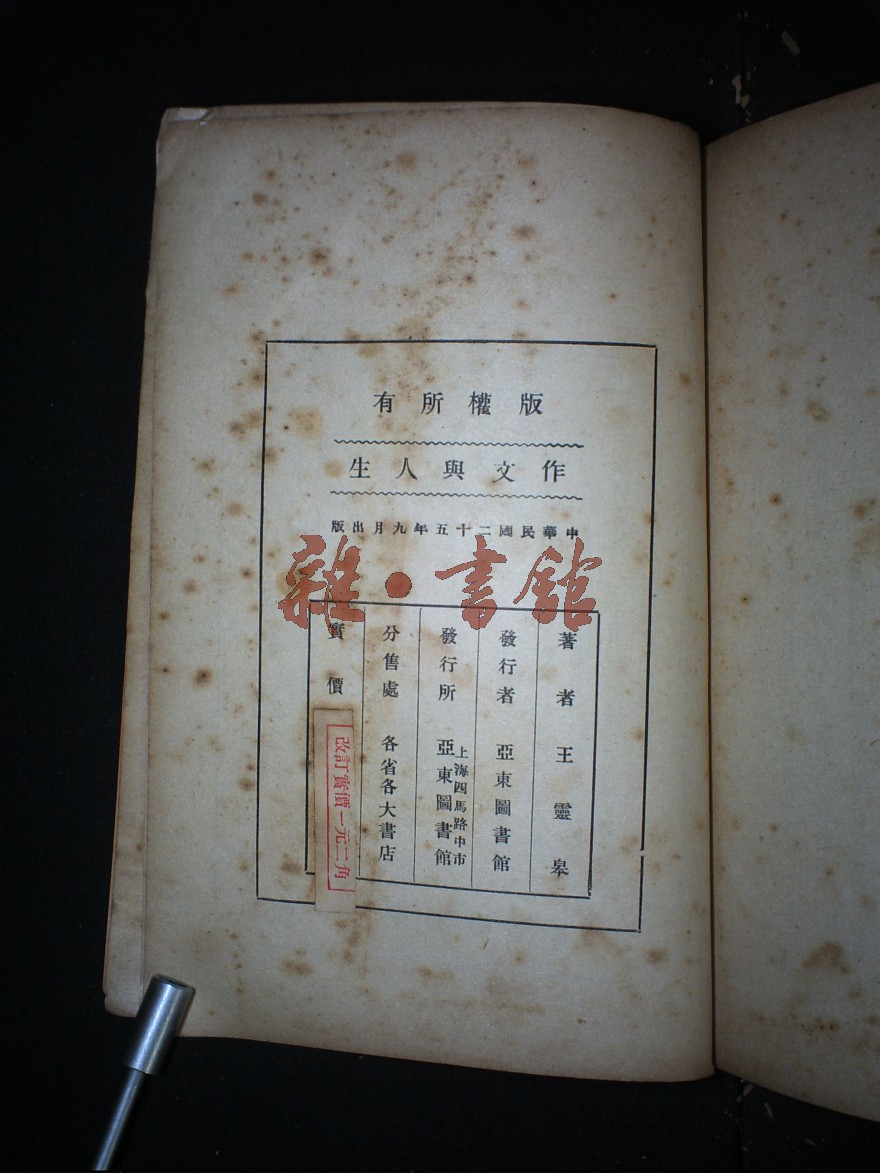 版權所有
作文與人生
中華民國二十五年九月出版
雜·書館
著者 王靈皋
發行者 亞東圖書館
發行所 上海四馬路中市 亞東圖書館
分售處 各省各大書店
實價
改訂實價一元二角